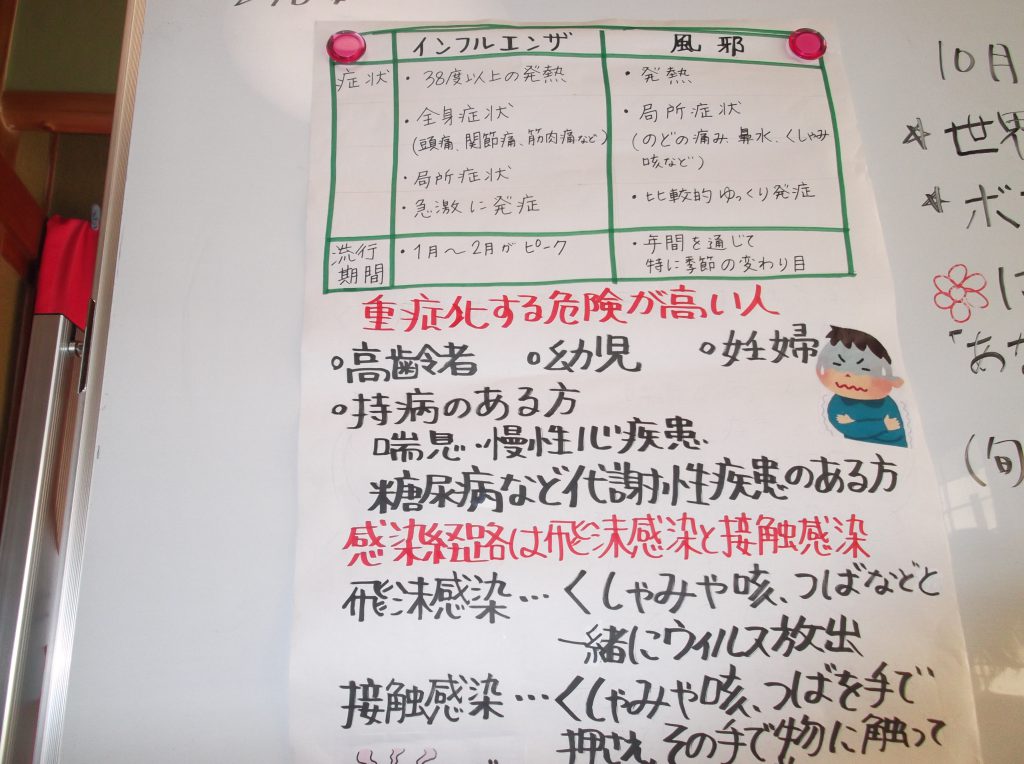 インフルエンザ 風邪
症状 ・38度以上の発熱 ・発熱
・全身症状 ・局所症状
(頭痛、関節痛、筋肉痛など) (のどの痛み、鼻水、くしゃみ
咳など)
・局所症状
・急激に発症 ・比較的ゆっくり発症
流行 ・1月～2月がピーク ・年間を通じて
期間 特に季節の変わり目
重症化する危険が高い人
○高齢者 ○幼児 ○妊婦
○持病のある方
喘息・慢性心疾患
糖尿病など代謝性疾患のある方
感染経路は飛沫感染と接触感染
飛沫感染…くしゃみや咳、つばなどと
一緒にウィルス放出
接触感染…くしゃみや咳、つばを手で
押さえ、その手で物に触って
10月
☆世界
☆ボ
は
「あな
(旬